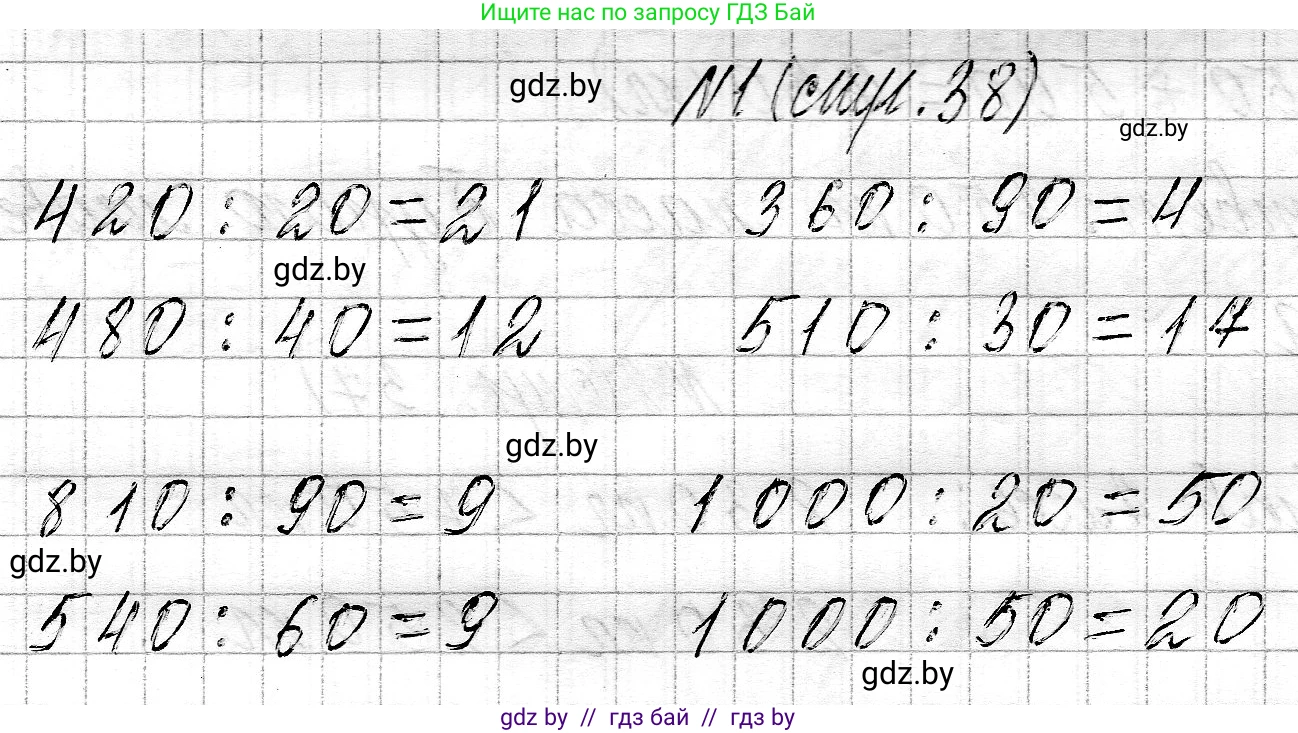 Ищите нас по запросу ГДЗ Бай
gdz.by №1 (стр. 38)
gdz.by
420 : 20 = 21 360 : 90 = 4
gdz.by
480 : 40 = 12 510 : 30 = 17
gdz.by
810 : 90 = 9 1000 : 20 = 50
gdz.by
540 : 60 = 9 1000 : 50 = 20
gdz.by
gdz by // гдз бай // гдз by